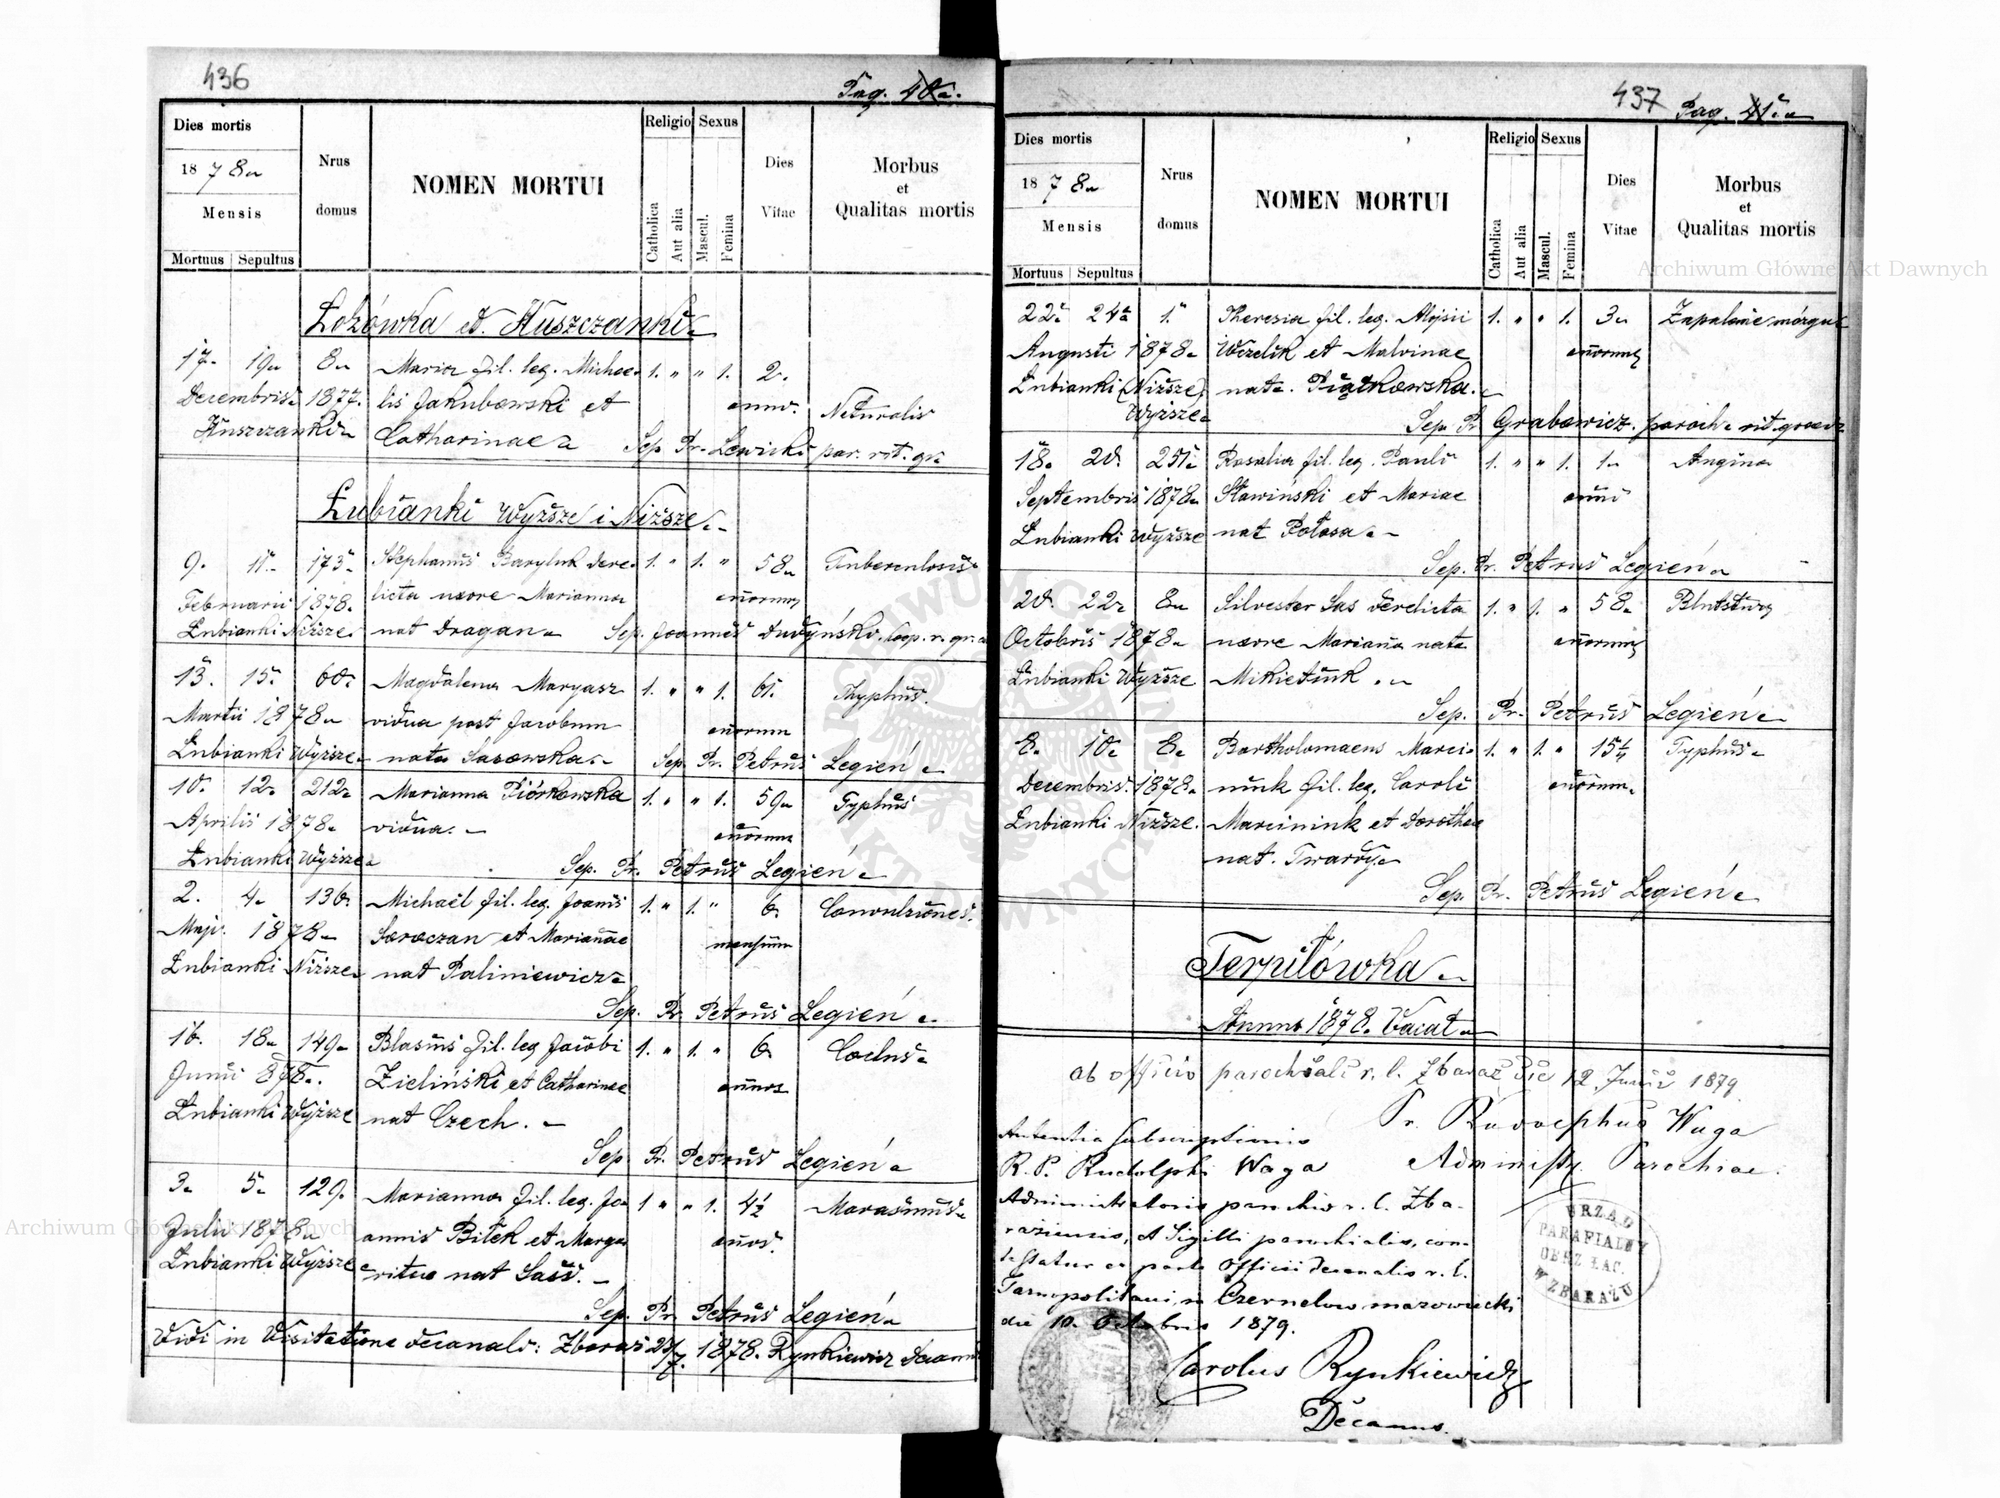 436
Pag. 40a.
Dies mortis
1878a
Mensis
Mortuus Sepultus
Nrus domus
NOMEN MORTUI
Religio
Catholica
Aut alia
Sexus
Mascul.
Femina
Dies Vitae
Morbus
et
Qualitas mortis
Łozówka et Huszczanki
17. 19a 8a Maria fil. leg. Michae- 1. " " 1. 2.
Decembris 1877. lis Jakubowski et anno. Naturalis
Huszczanki Catharinae Sep. Pr. Lewicki par. rit. gr.
Łubianki Wyższe i Niższe.
9. 11. 173 Stephanus Baryluk dere- 1. " 1. " 58a Tuberculosis
Februarii 1878. licta uxore Marianna annorum
Łubianki Niższe nat Dragan Sep. Joannes Dudyński. Coop. r. gr.
13. 15. 60. Magdalena Maryasz 1. " " 1. 61. Thyphus.
Martii 1878a vidua post Jacobum annorum
Łubianki Wyższe nata Sasowska. Sep. Pr. Petrus Legień
10. 12. 212a Marianna Piórkowska 1. " " 1. 59a Typhus
Aprilis 1878. vidua. annorum
Łubianki Wyższe
Sep. Pr. Petrus Legień
2. 4. 130. Michaël fil. leg. Joanis 1. " 1. " 6. Convulsiones.
Maji. 1878 Saraczan et Marianae mensium
Łubianki Niższe nat Paliniewicz
Sep. Pr. Petrus Legień
16. 18a 149a Blasius fil. leg Jacobi 1. " 1. " 6
Junii 878. Zieliński et Catharinae annos
Łubianki Wyższe nat Czech.
Sep. Pr. Petrus Legień
3. 5. 129. Marianna fil. leg. Jo- 1 " " 1. 4½ Marasmus
Julii 1878a annis Bilek et Marga- annos.
Łubianki Wyższe ritae nat Sass.
Sep. Pr. Petrus Legień
Vidi in Visitatione decanali: Zbaraż 1878. Rynkiewicz
437
Pag. 41a
Dies mortis
1878a
Mensis
Mortuus Sepultus
Nrus domus
NOMEN MORTUI
Religio
Catholica
Aut alia
Sexus
Mascul.
Femina
Dies Vitae
Morbus
et
Qualitas mortis
22. 24a 1. Theresia fil. leg. Alojsii 1. " " 1. 3a Zapalenie mózgu
Augusti 1878a Wczelik et Malvinae annorum
Łubianki (Niższe) nat. Piątkowska.
Wyższe
Sep. Pr Grabowicz. paroch. rit. graeci
18. 20. 251a Rosalia fil. leg. Pauli 1. " " 1. 1a Angina
Septembris 1878a Sławiński et Mariae anni
Łubianki Wyższe nat Potasa
Sep. Pr. Petrus Legień
20. 22a 8a Silvester Sas derelicta 1. " 1. " 58a
Octobris 1878a uxore Mariana nata annorum
Łubianki Wyższe Mikietiuk
Sep. Pr. Petrus Legień
8. 10a 8a Bartholomaeus Marci- 1. " 1. " 15¼ Typhus
Decembris. 1878a niuk fil. leg. Caroli annorum.
Łubianki Niższe. Marciniuk et Dorothea
nat. Twardy
Sep. Pr. Petrus Legień
Terpiłówka
Annus 1878. Vacat
Ab officio parochiali r. l. Zbaraż die 12 Junii 1879
Pr. Rudolphus Waga
Administr. Parochiae.
Autentia subscriptionis
R. P. Rudolphi Waga
Administratoris parochiae r. l. Zba-
raziensis, et Sigilli parochialis, con-
testatur ex parte Officii decanalis r. l.
Tarnopoliani, in Czernelow mazowiecki
die 10. Octobris 1879.
Carolus Rynkiewicz
Decanus.
URZĄD
PARAFIALNY
OBRZ. ŁAC.
W ZBARAŻU
Archiwum Główne Akt Dawnych
Archiwum Główne Akt Dawnych
ARCHIWUM GŁÓWNE AKT DAWNYCH